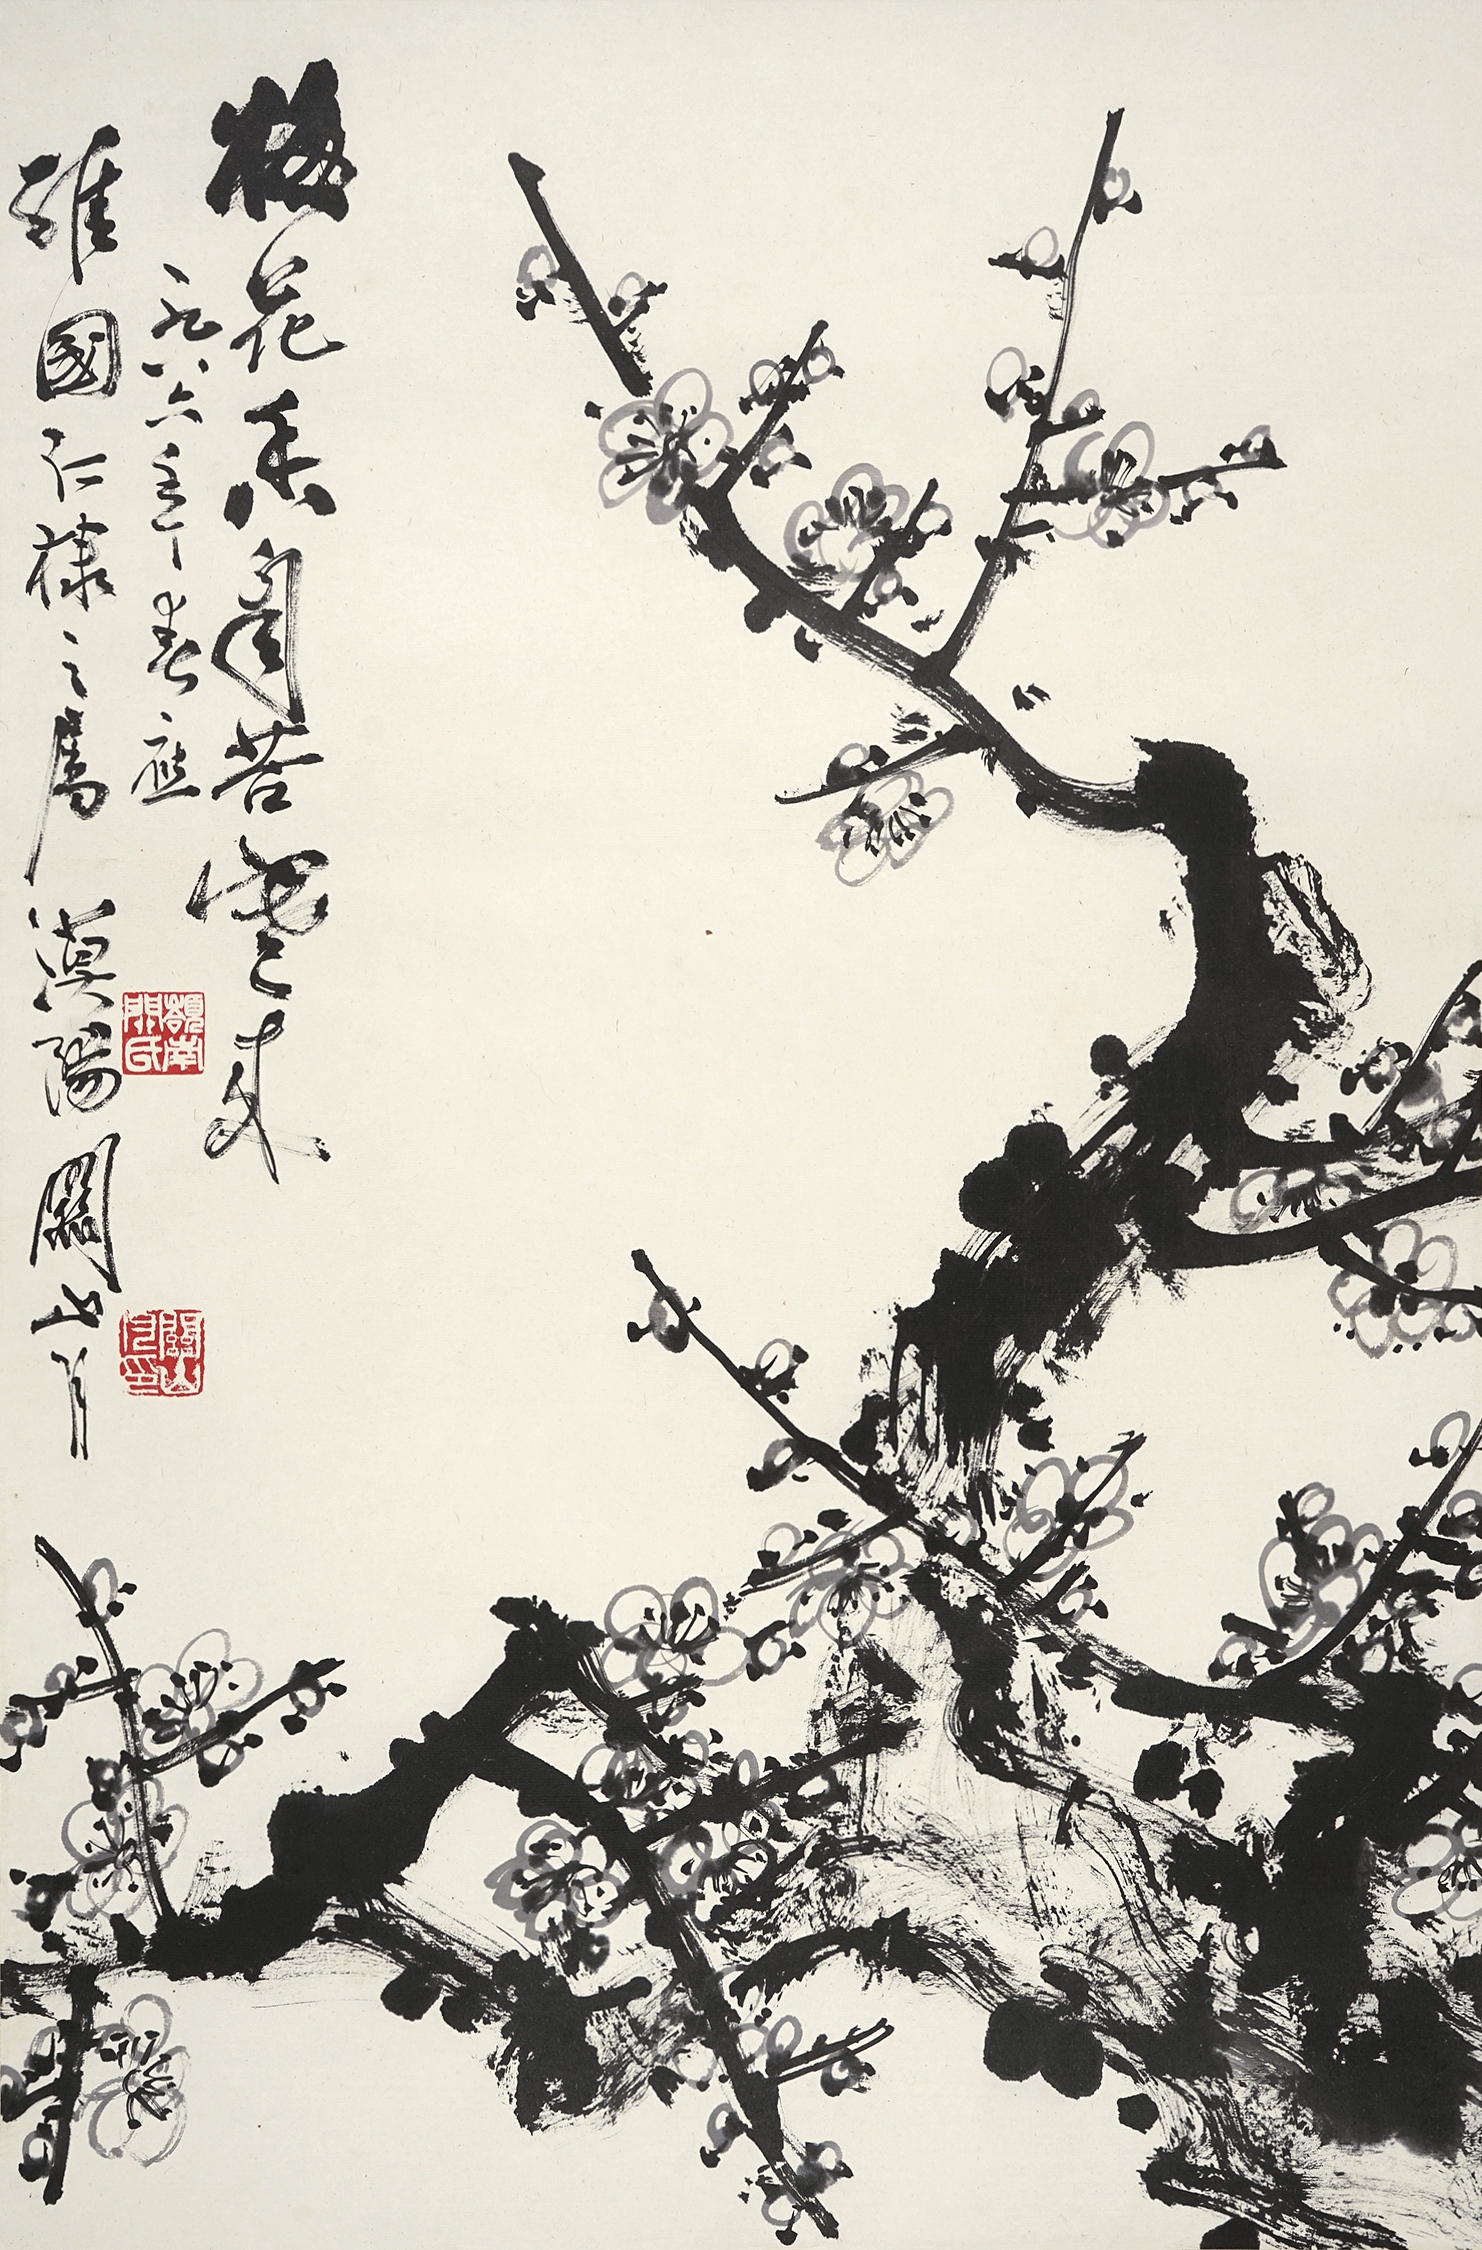 梅花香自苦寒來
一九八六年春應
維國仁棣之屬 漠陽關山月
嶺南關氏
關山月印